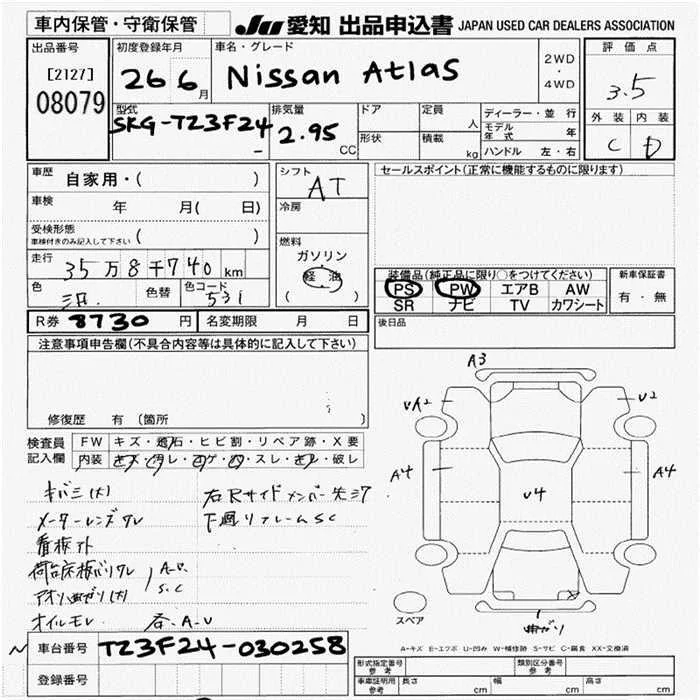 車内保管・守衛保管
JU 愛知 出品申込書 JAPAN USED CAR DEALERS ASSOCIATION
出品番号
[2127]
08079
初度登録年月
26 6月
車名・グレード
Nissan Atlas
2WD
・
4WD
評価点
3.5
外装 内装
C D
型式
SKG-TZ3F24
排気量
2.95
CC
ドア
形状
定員
人
積載
kg
ディーラー・並行
モデル年式 年
ハンドル 左・右
車歴
自家用・( )
車検
年 月( 日)
受検形態
車検付きのみ記入して下さい ( )
走行
35万8千740km
色
色替
色コード
531
シフト
AT
冷房
燃料
ガソリン
軽油
( )
セールスポイント(正常に機能するものに限ります)
装備品(純正品に限り○をつけてください)
PS PW エアB AW
SR ナビ TV カワシート
新車保証書
有・無
後日品
R券 8730円
名変期限 月 日
注意事項申告欄(不具合内容等は具体的に記入して下さい)
修復歴 有 (箇所 )
検査員記入欄
FW キズ・飛石・ヒビ割・リペア跡・X要
内装 キズ・汚レ・コゲ・穴・スレ・キレ・破レ
キバミ(大)
メーターレンズワレ
看板外
荷台床板バリワレ
アオリ曲ガリ(大)
オイルモレ
A-U
S.C
各.A-U
右Rサイドメンバー先37
下廻リフレームSC
A3
UA2
U2
A4
U4
A4
曲ガリ
スペア
A-キズ E-エクボ U-凹み W-補修跡 S-サビ C-腐食 XX-交換済
車台番号
TZ3F24-030258
登録番号
形式指定番号
参考
類別区分番号
参考
車庫証明用
参考
長さ cm
幅 cm
高さ cm